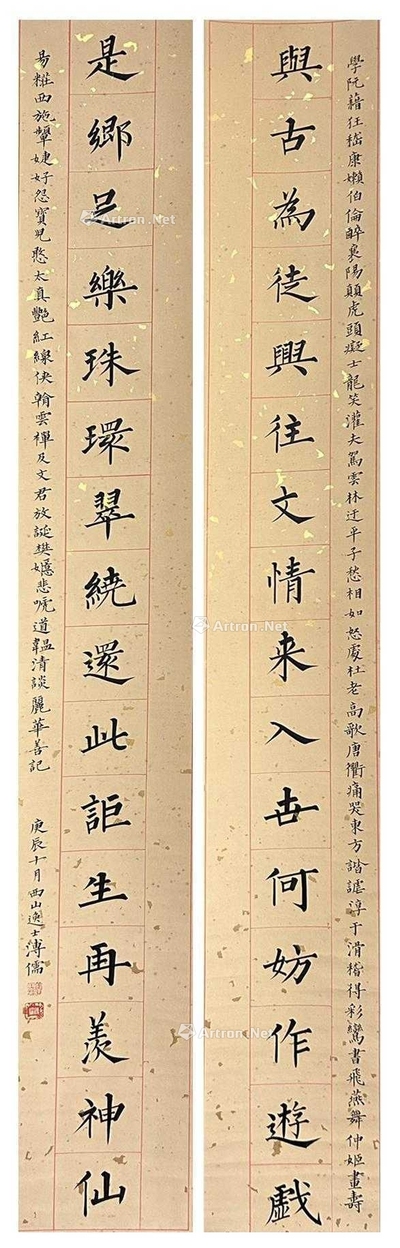 學阮籍狂嵇康嬾伯倫醉襄陽顛虎頭癡士龍笑灌夫罵雲林迂平子愁相如怒處杜老高歌唐衢痛哭東方諧謔淳于滑稽得彩鸞書飛燕舞仲姬畫壽
與古為徒興往文情来入世何妨作遊戲
是鄉足樂珠環翠繞還此詎生再羨神仙
易粧西施顰婕妤怨寶兒憨太真艷紅線俠朝雲禪及文君放誕樊嫕悲唬道韞清談麗華善記
庚辰十月西山逸士溥儒
Artron.Net
Artron.Net
Artron.Net